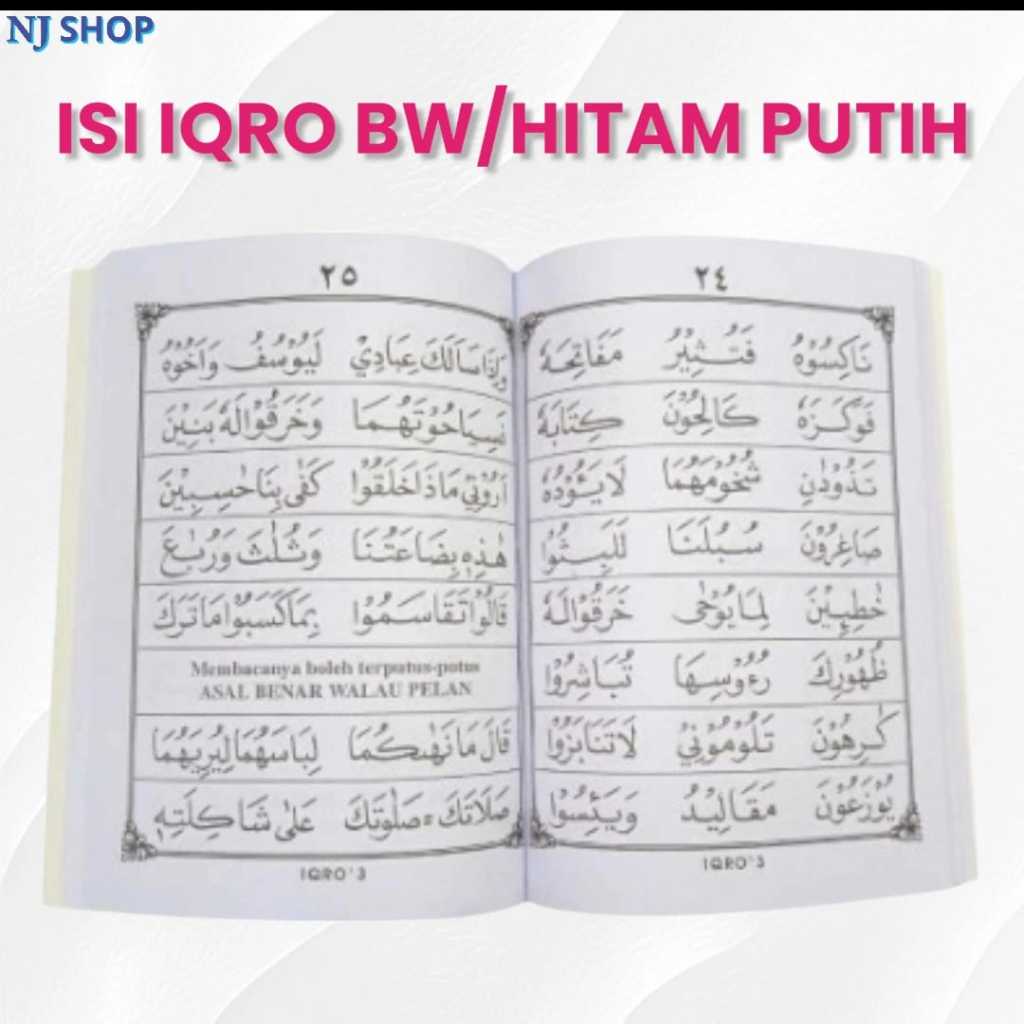 NJ SHOP
ISI IQRO BW/HITAM PUTIH
٢٤
نَاكِسُوْهُ فَتُثِيْرُ مَفَاتِحَهٗ
فَوَكَزَهٗ كَالِحُوْنَ كِتَابَهٗ
تَذُوْدٰنِ شُحُوْمَهُمَا لَا يَئُوْدُهٗ
صَاغِرُوْنَ سُبُلَنَا لَلَبِثُوْا
خٰطِـِٕيْنَ لِمَا يُوْحٰى خَرَقُوْا لَهٗ
ظُهُوْرِكَ رُءُوْسِهَا تُبَاشِرُوْا
كٰرِهُوْنَ تَلُوْمُوْنِيْ لَا تَنَابَزُوْا
يُوْزَعُوْنَ مَقَالِيْدُ وَيَئِسُوْا
IQRO'3
٢٥
وَاِذَا سَاَلَكَ عِبَادِيْ لَيُوْسُفُ وَاَخُوْهُ
نَسِيَا حُوْتَهُمَا وَخَرَقُوْا لَهٗ بَنِيْنَ
اَرُوْنِيْ مَاذَا خَلَقُوْا كَفٰى بِنَا حٰسِبِيْنَ
هٰذِهٖ بِضَاعَتُنَا وَثُلٰثَ وَرُبٰعَ
قَالُوْا تَقَاسَمُوْا بِمَا كَسَبُوْا مَا تَرَكَ
Membacanya boleh terputus-putus
ASAL BENAR WALAU PELAN
قَالَ مَا نَهٰىكُمَا لِبَاسَهُمَا لِيُرِيَهُمَا
صَلَاتَكَ ، صَلٰوتَكَ عَلٰى شَاكِلَتِهٖ
IQRO'3